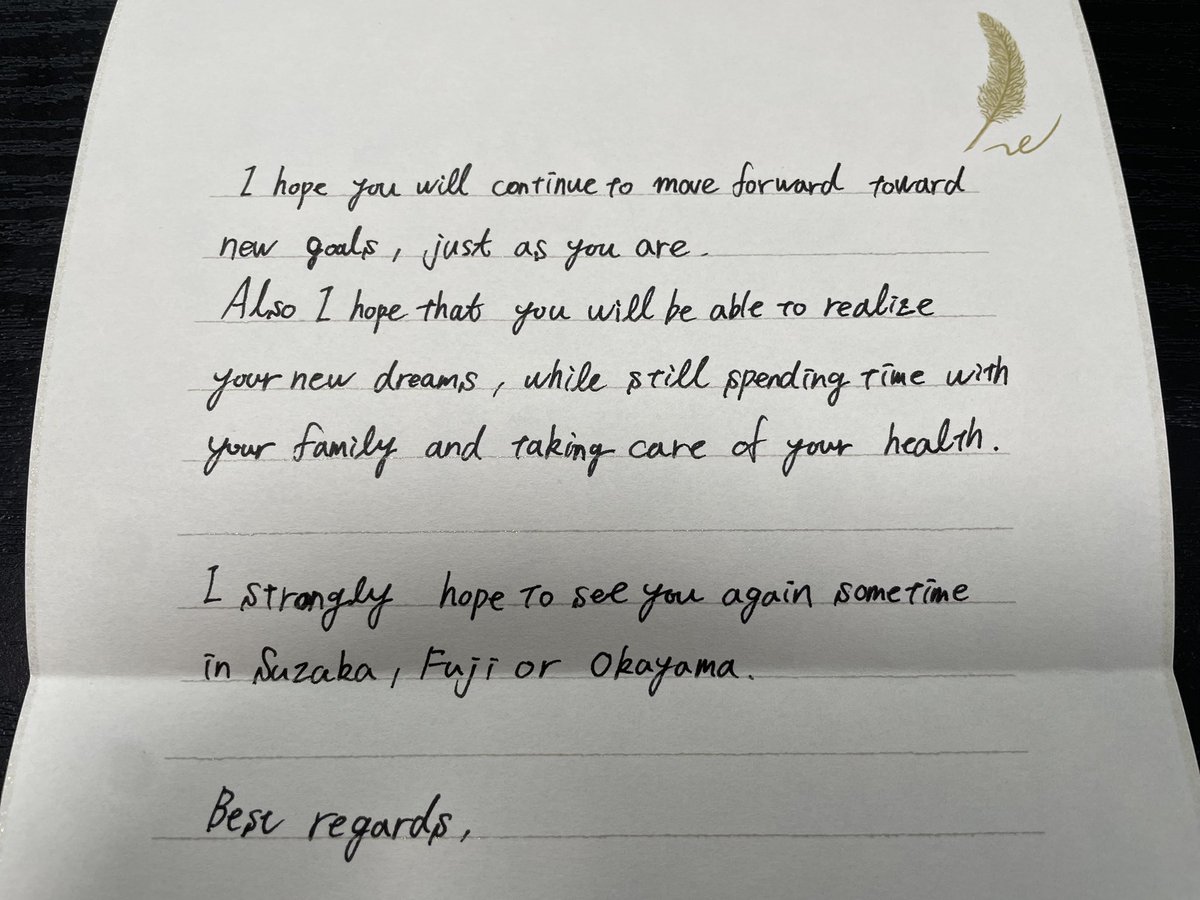 I hope you will continue to move forward toward
new goals, just as you are.
Also I hope that you will be able to realize
your new dreams, while still spending time with
your family and taking care of your health.
I strongly hope to see you again sometime
in Suzaka, Fuji or Okayama.
Best regards,